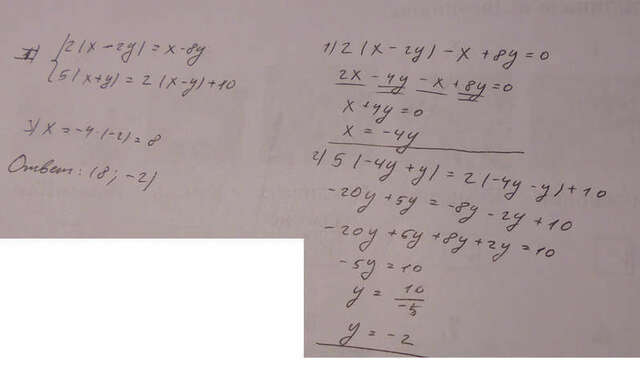 {2(x-2y)=x-8y
5(x+y)=2(x-y)+10
3) x=-4·(-2)=8
Ответ: (8; -2)
1) 2(x-2y)-x+8y=0
2x-4y-x+8y=0
x+4y=0
x=-4y
2) 5(-4y+y)=2(-4y-y)+10
-20y+5y=-8y-2y+10
-20y+5y+8y+2y=10
-5y=10
y=10/-5
y=-2